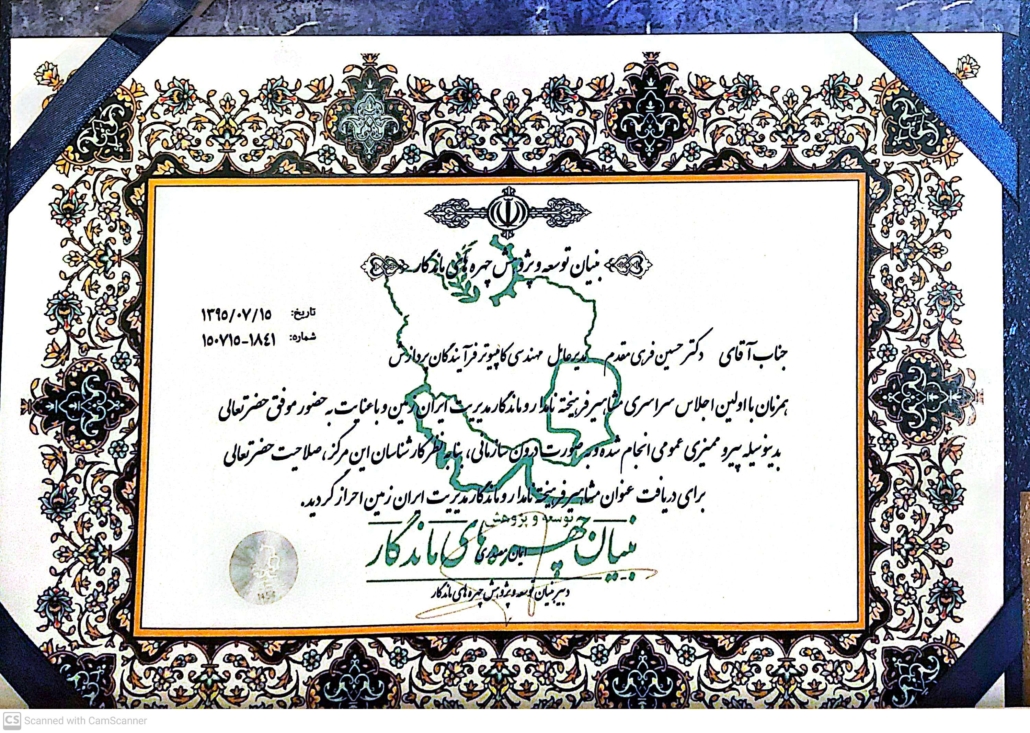 بنیان توسعه و پژوهش چهره های ماندگار
تاریخ: ۱۳۹۵/۰۷/۱۵
شماره: ۱۵۰۷۱۵-۱۸۴۱
جناب آقای دکتر حسین فری مقدم مدیرعامل مهندسی کامپیوتر فرآیندگان پردازش
همزمان با اولین اجلاس سراسری مشاهیر فرهیخته نامدار و ماندگار مدیریت ایران زمین و با عنایت به حضور موفق حضرتعالی
بدینوسیله پیرو ممیزی عمومی انجام شده و به صورت درون سازمانی، بنا به نظر کارشناسان این مرکز، صلاحیت حضرتعالی
برای دریافت عنوان مشاهیر فرهیخته نامدار و ماندگار مدیریت ایران زمین احراز گردید.
توسعه و پژوهش
بنیان چهره های ماندگار
دبیر بنیان توسعه و پژوهش چهره های ماندگار
CS Scanned with CamScanner